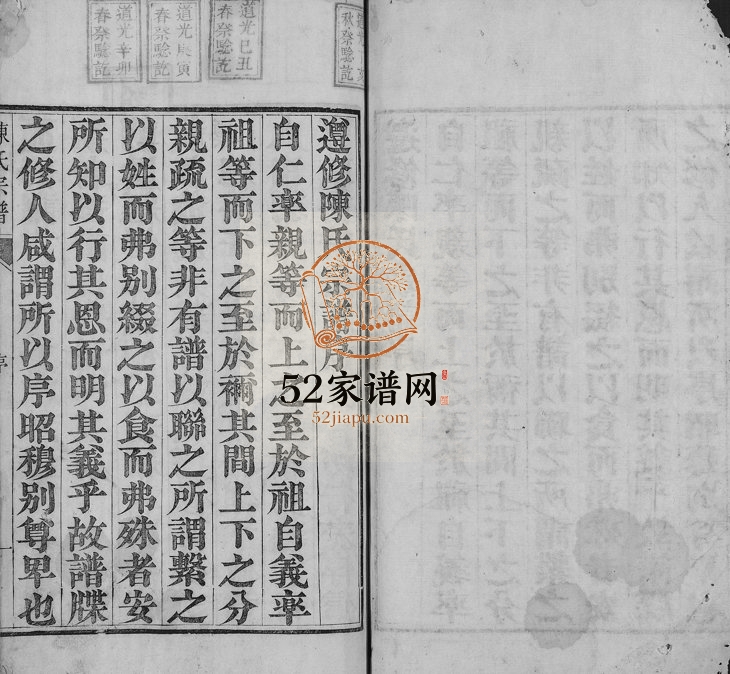 遵修陳氏宗譜序
自仁率親等而上之至於祖自義率
祖等而下之至於禰其間上下之分
親疏之等非有譜以聯之所謂繫之
以姓而弗別綴之以食而弗殊者安
所知以行其恩而明其義乎故譜牒
之修人咸謂所以序昭穆別尊卑也
陳氏宗譜
序
秋祭驗訖
道光己丑
春祭驗訖
道光庚寅
春祭驗訖
道光辛卯
春祭驗訖
52家谱网
52jiapu.com